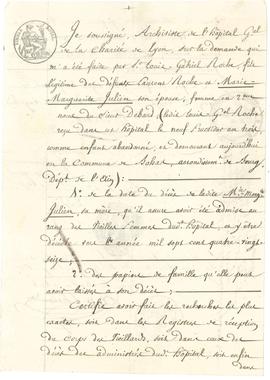 Je soussigné, Archiviste de l'hôpital G.al
de la charité de Lyon, sur la demande qui
m'a été faite par S.r Louis Gabriel Roche fils
légitime des défunts Laurent Roche et Marie-
Marguerite Julien son épouse, femme en 2.mes
noces du Sieur Debard (ledit Louis G.el Roche
reçu dans cet hôpital le neuf fructidor an trois
comme enfant abandonné, et demeurant aujourd'hui
en la Commune de arrondissem.t de Bourg
Dép.t de l'Ain):
1.° de la date du décès de ladite M.ie Marg.te
Julien, sa mère, qu'il assure avoir été admise au
rang des Vieilles femmes dud. hôpital, et y être
décédée sur l'année mil sept cent quatre-vingt-
seize;
2.° des papiers de famille qu'elle peut
avoir laissés à son décès:
Certifie avoir fait les recherches les plus
exactes, soit dans les Registres de réception
du corps des Vieillards, soit dans ceux de
décès des administrés dud. hôpital, soit enfin
dans